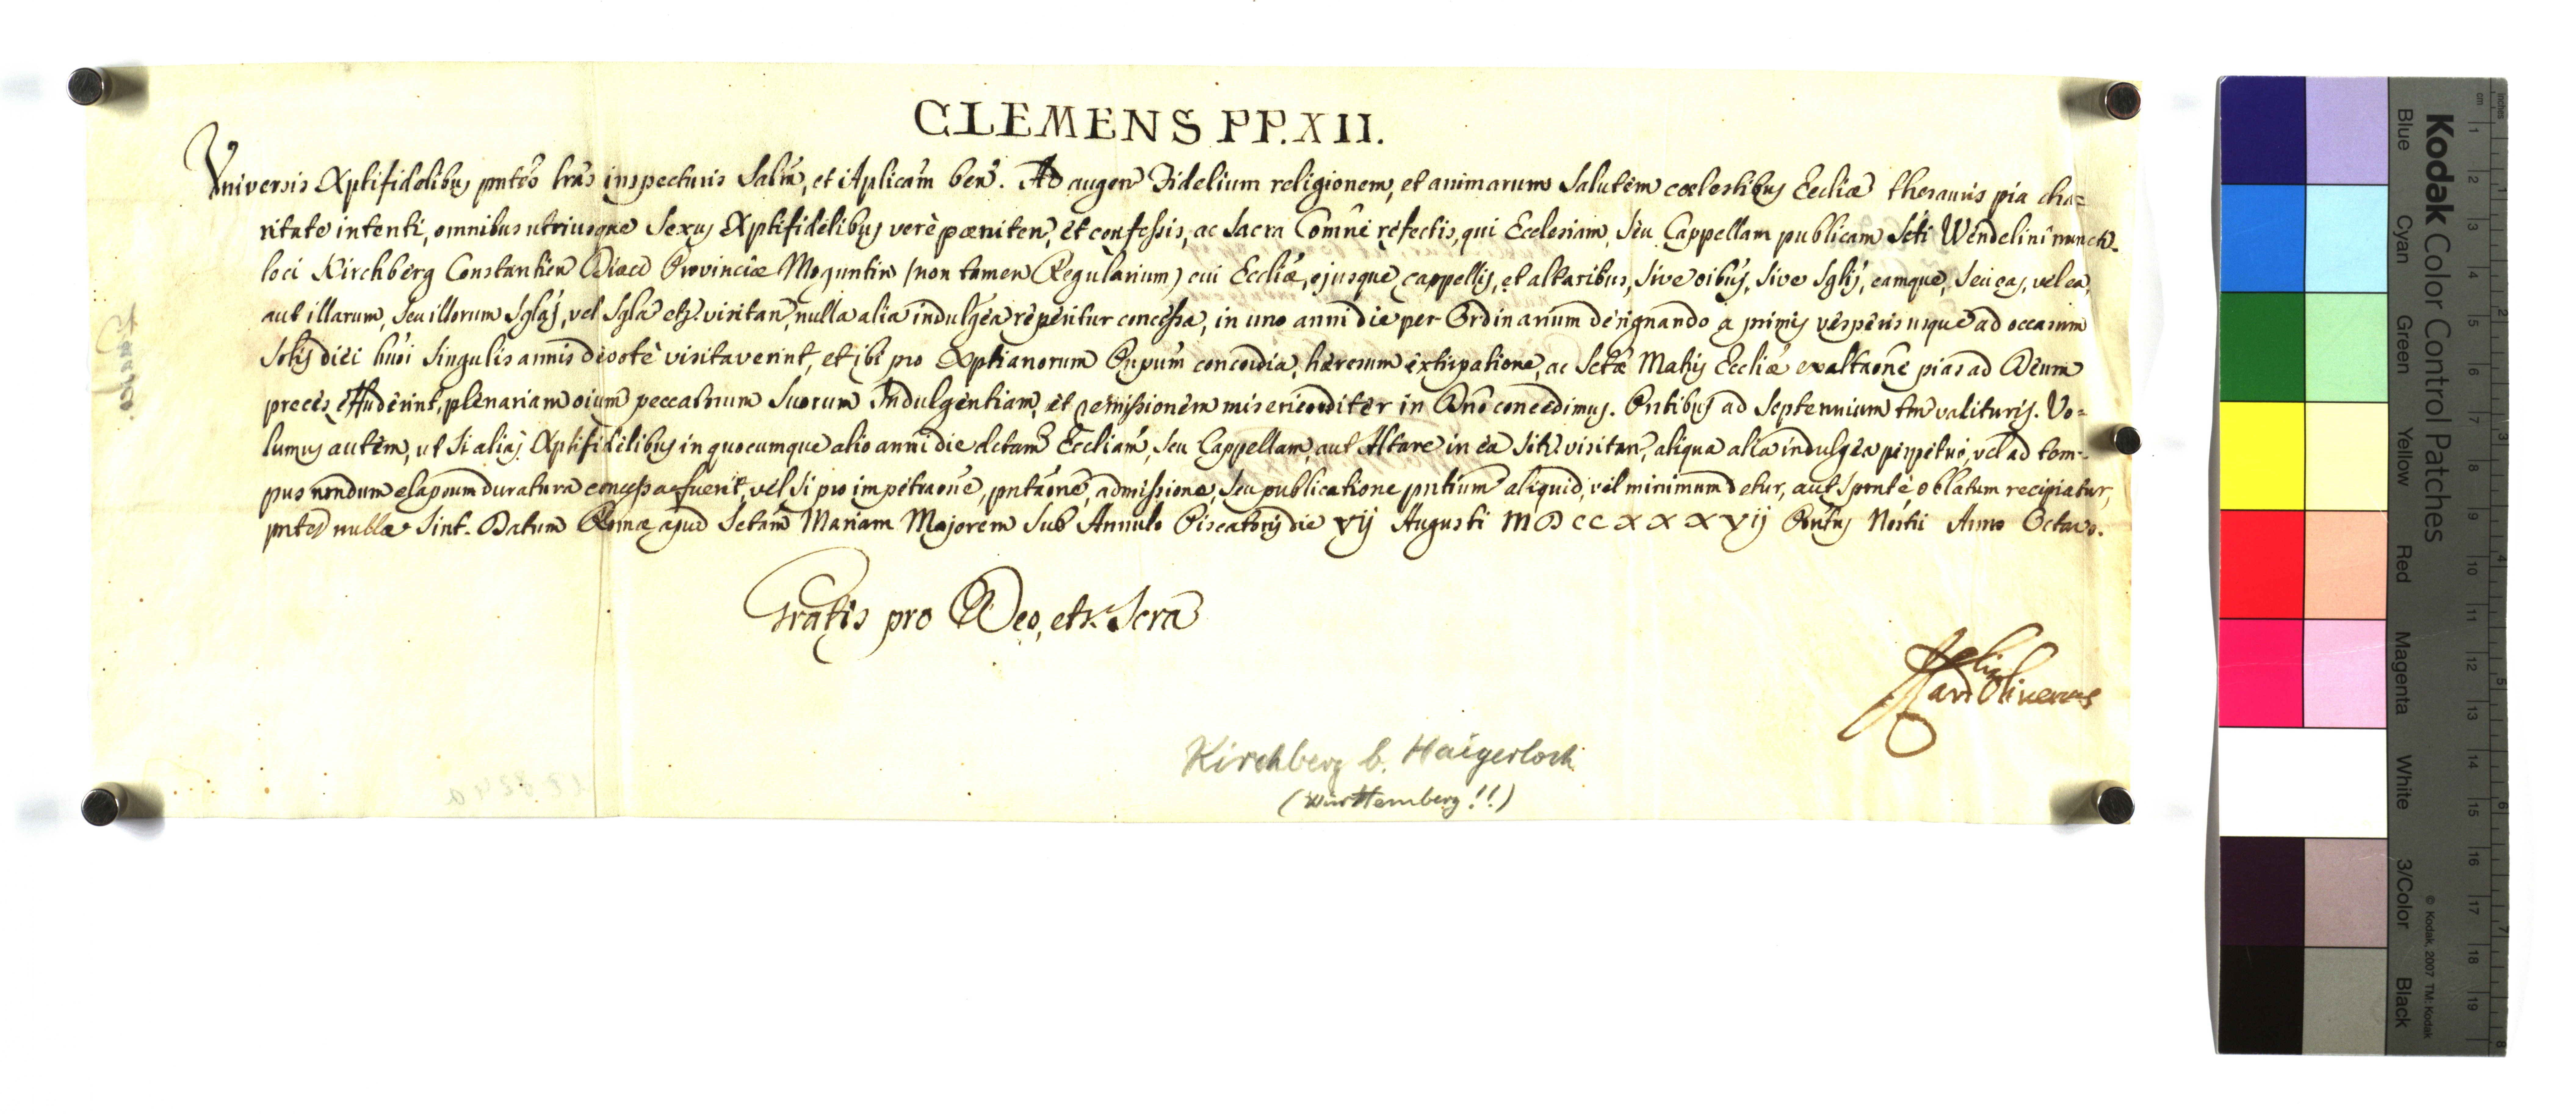 CLEMENS PP. XII.
Universis Xptifidelibus pntes lras inspecturis Salm, et Aplicam ben. Ad augen Fidelium religionem, et animarum Salutem cœlestibus Eccliæ thesauris pia cha=
ritate intenti, omnibus utriusque Sexus Xptifidelibus verè pœniten, et confessis, ac Sacra Comne refectis, qui Ecclesiam, Seu Cappellam publicam Scti Wendelini nuncti
loci Kirchberg Constantien Diæc Provinciæ Moguntin (non tamen Regularium) cui Eccliæ, ejusque cappellis, et altaribus, Sive oibus, Sive Sglis, eamque, Seu eas, vel ea,
aut illarum, Seu illorum Sglas, vel Sgla etr visitan, nulla alia indulgea reperitur concessa, in uno anni die per Ordinarium designando a primis vesperis usque ad occasum
Solis diei hmoi Singulis annis devotè visitaverint, et ibi pro Xptianorum Pnpum concordia, hæresum extirpatione, ac Sctæ Matris Eccliæ exaltaone pias ad Deum
preces effuderint, plenariam oium peccatorum Suorum Indulgentiam, et remissionem misericorditer in Dno concedimus. Pntibus ad Septennium tm valituris. Vo=
lumus autem, ut Si alias Xptifidelibus in quocumque alio anni die dctam Eccliam, Seu Cappellam, aut Altare in ea Sit visitan, aliqua alia indulgea perpetuò, vel ad tem-
pus nondum elapsum duratura concessa fuerit, vel si pro impetraone, pntaone, admissione, Seu publicatione pntium aliquid, vel minimum detur, aut sponte oblatum recipiatur,
pntes nullæ Sint. Datum Romæ apud Sctam Mariam Majorem Sub Annulo Piscatoris die xvij Augusti MDCCXXXVij Pontus Nostri Anno Octavo.
Gratis pro Deo, et Scra
Card Oliverius
Kirchberg b. Haigerloch
(Württemberg!!)
Kodak Color Control Patches
Blue Cyan Green Yellow Red Magenta White 3/Color Black
© Kodak, 2007 TM: Kodak
cm 1 2 3 4 5 6 7 8 9 10 11 12 13 14 15 16 17 18 19
inches 1 2 3 4 5 6 7 8